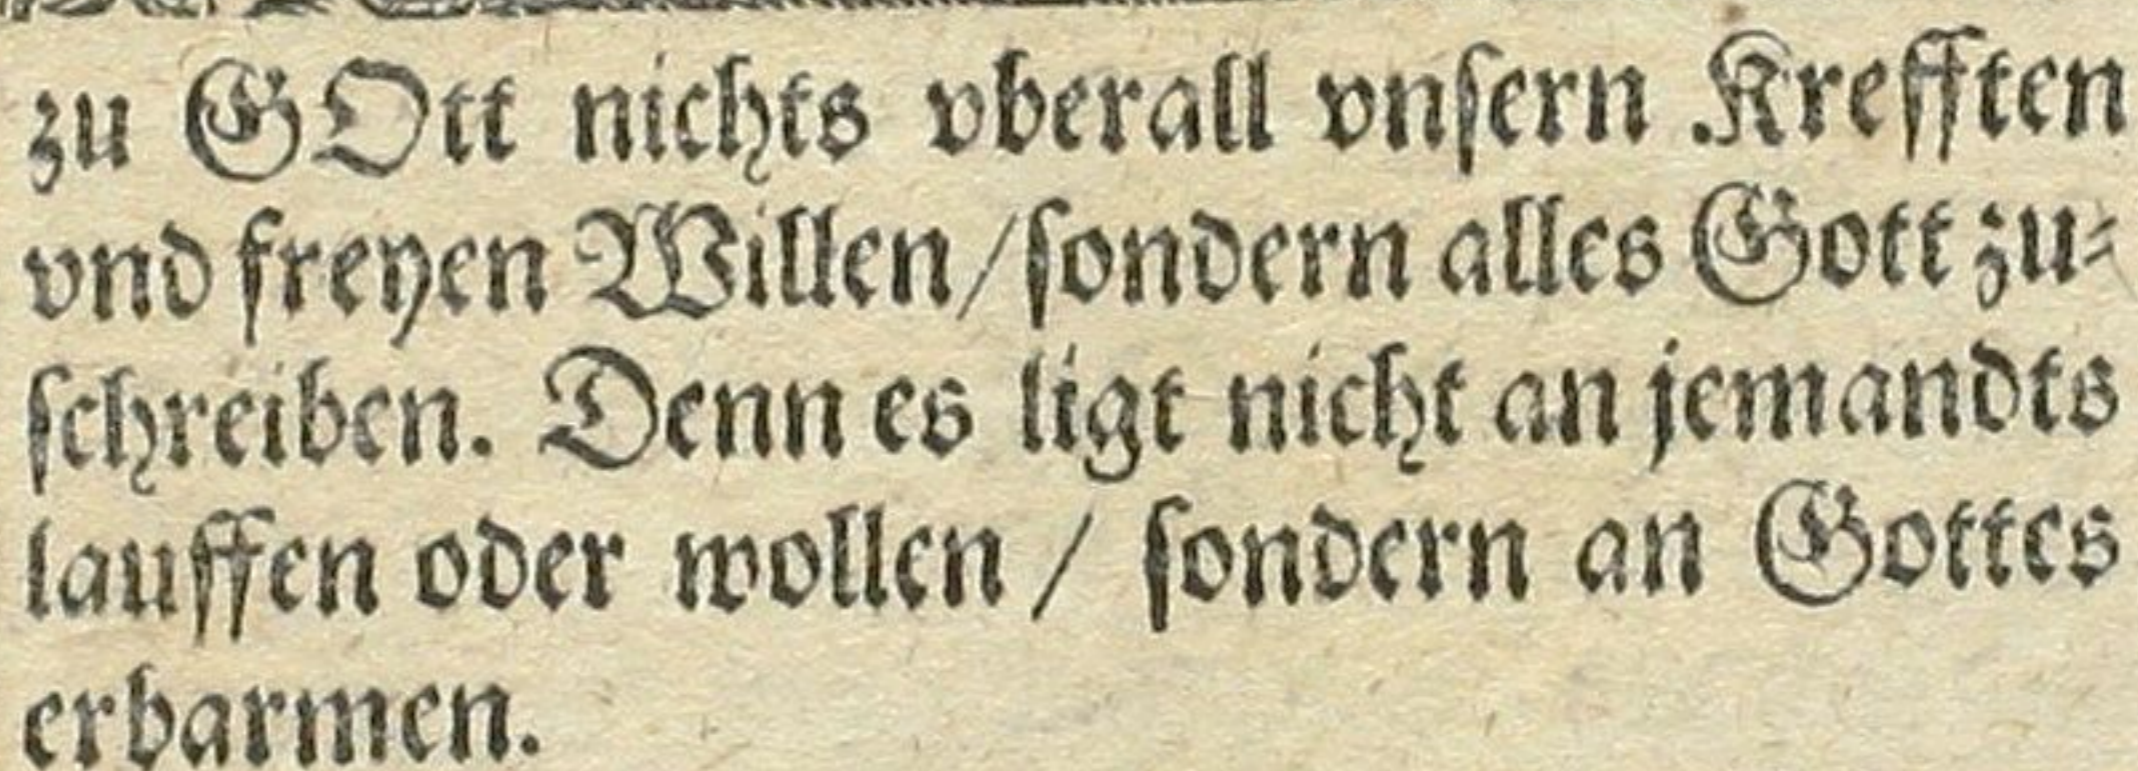 zu GOtt nichts vberall vnſern Krefften
vnd freyen Willen/ſondern alles Gott zu⸗
ſchreiben. Denn es ligt nicht an jemandts
lauffen oder wollen / ſondern an Gottes
erbarmen.